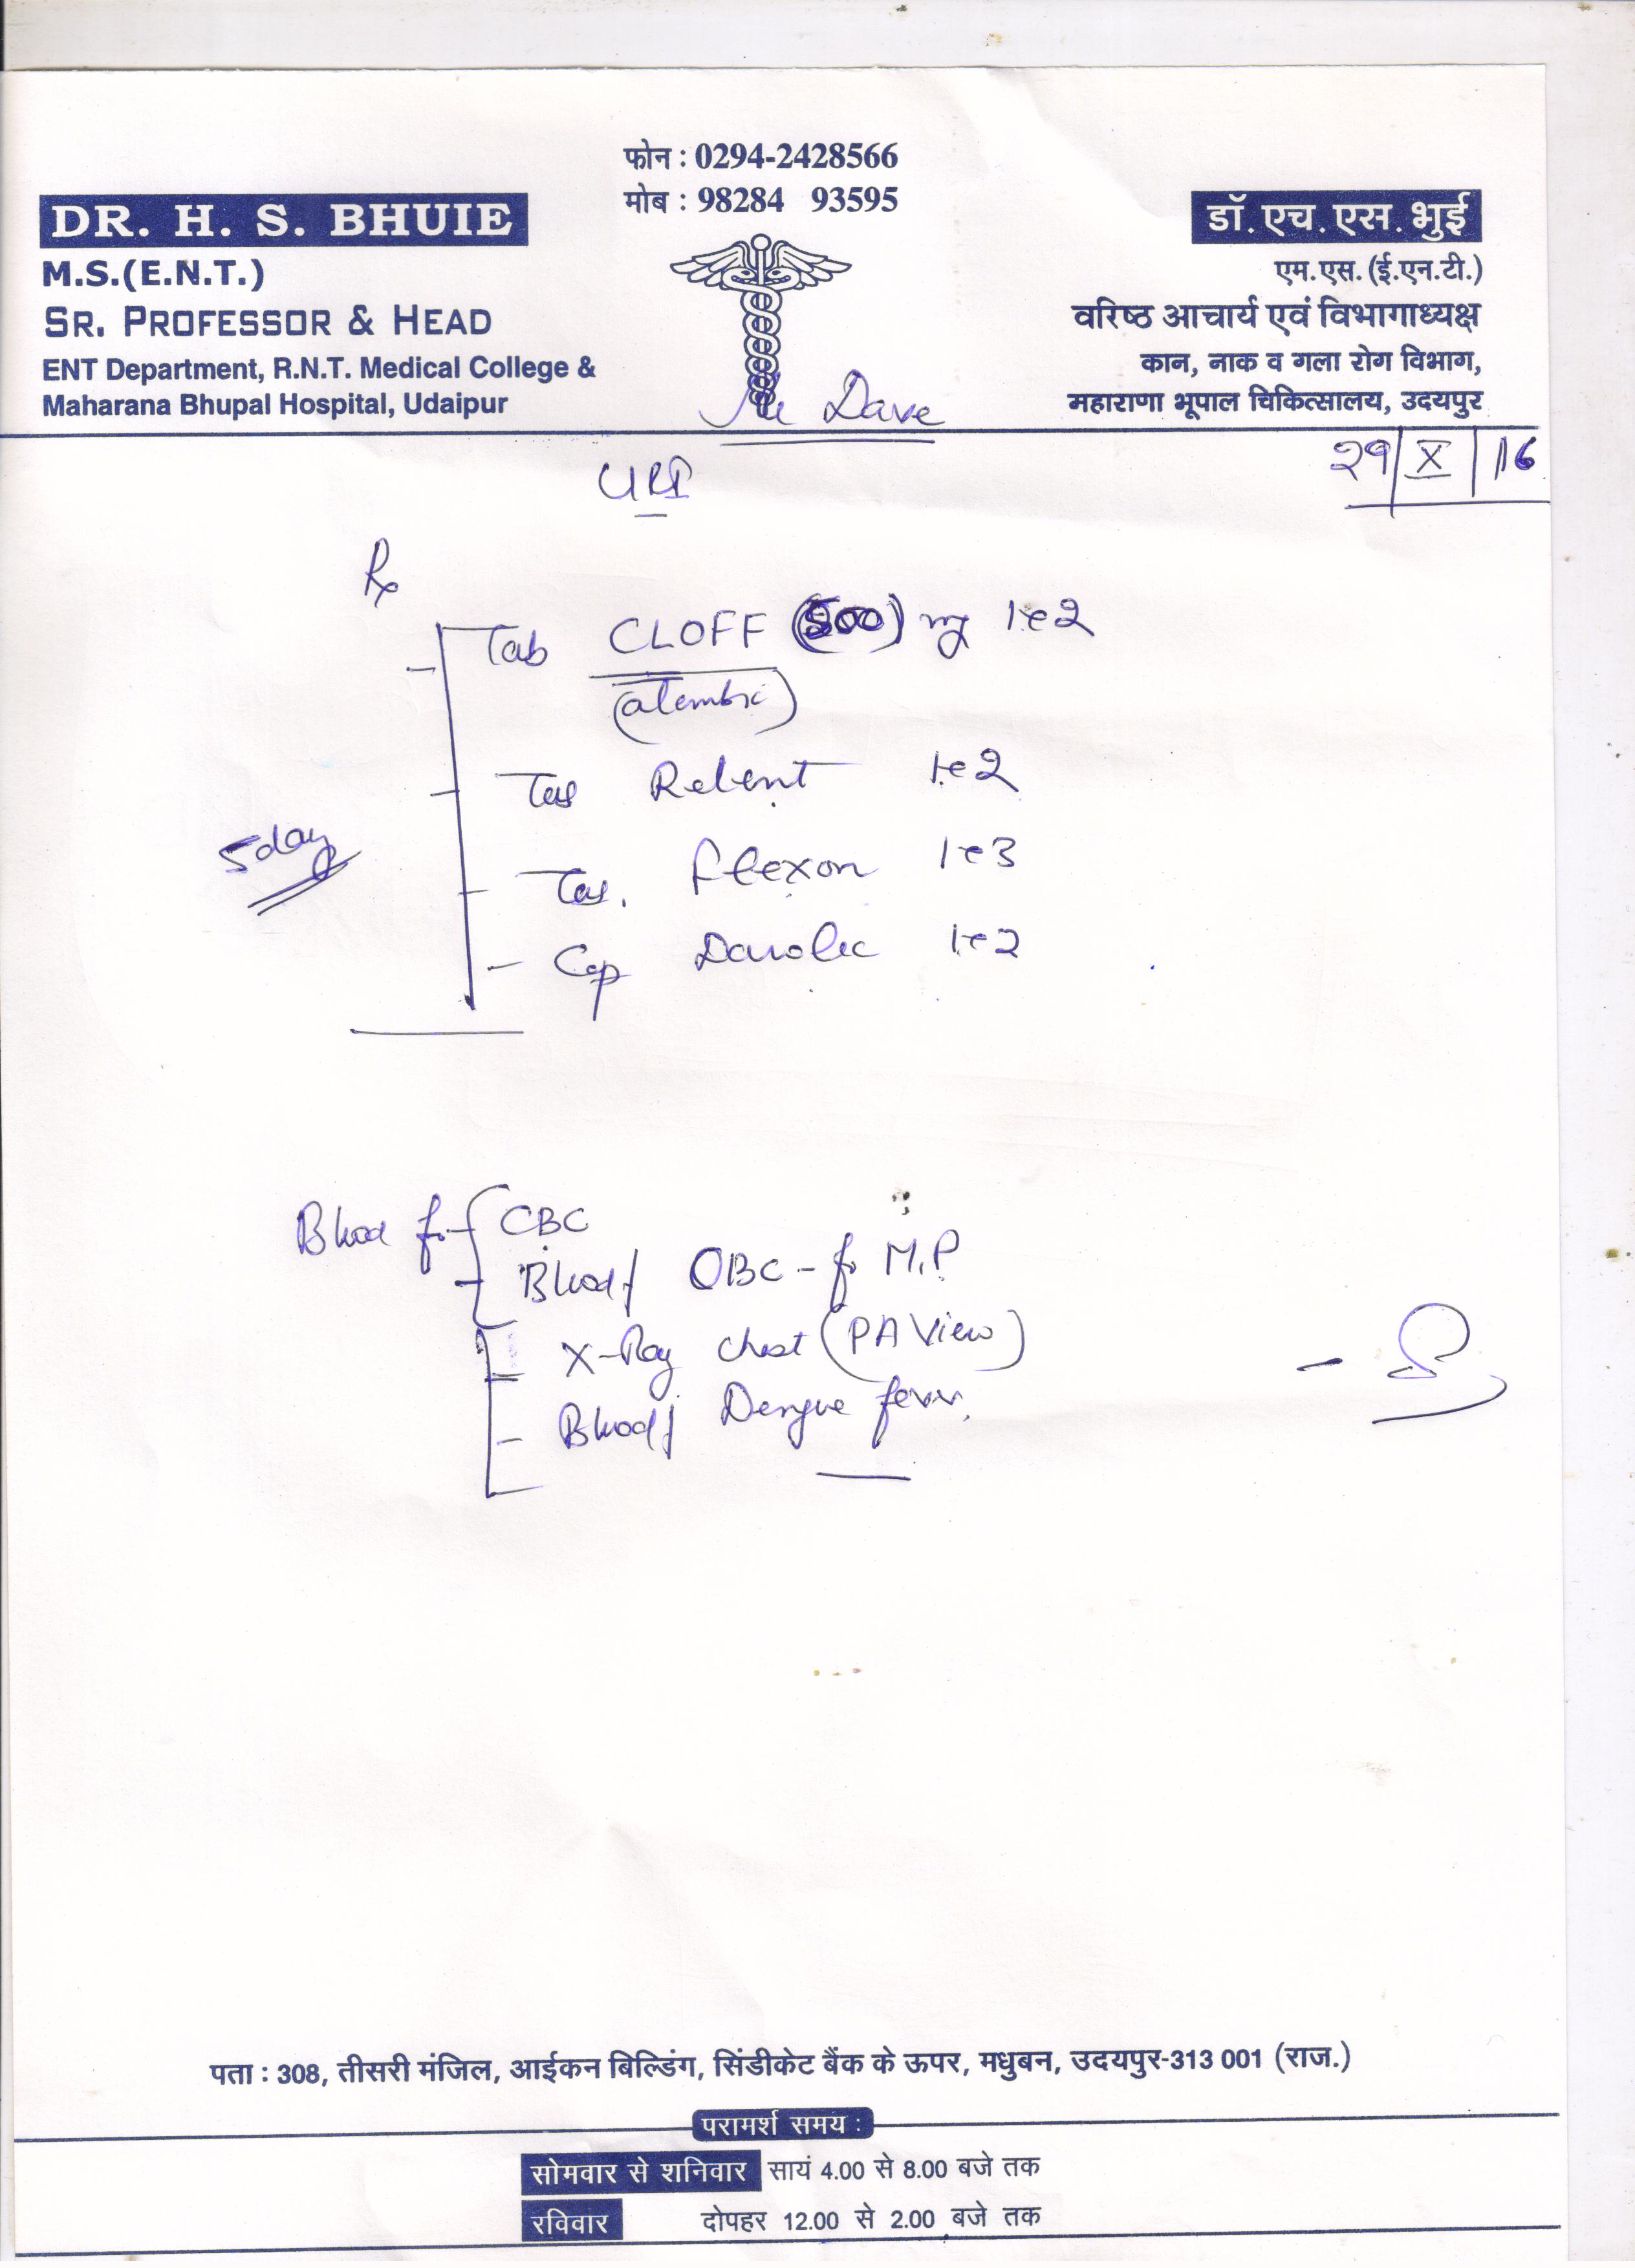 फोन : 0294-2428566
मोब : 98284 93595
DR. H. S. BHUIE
M.S.(E.N.T.)
SR. PROFESSOR & HEAD
ENT Department, R.N.T. Medical College &
Maharana Bhupal Hospital, Udaipur
डॉ. एच. एस. भुई
एम.एस. (ई.एन.टी.)
वरिष्ठ आचार्य एवं विभागाध्यक्ष
कान, नाक व गला रोग विभाग,
महाराणा भूपाल चिकित्सालय, उदयपुर
Dave
29/X/16
Rx
Tab CLOFF (500) mg 1-e2
(alembic)
Tab Relent 1-e2
5 day
Tab. flexon 1-e3
Cap 1-e2
Blood for CBC
Blood/ OBC - for M.P
X-Ray chest (PA View)
Blood/ Dengue fever.
पता : 308, तीसरी मंजिल, आईकन बिल्डिंग, सिंडीकेट बैंक के ऊपर, मधुबन, उदयपुर-313 001 (राज.)
परामर्श समय :
सोमवार से शनिवार सायं 4.00 से 8.00 बजे तक
रविवार दोपहर 12.00 से 2.00 बजे तक